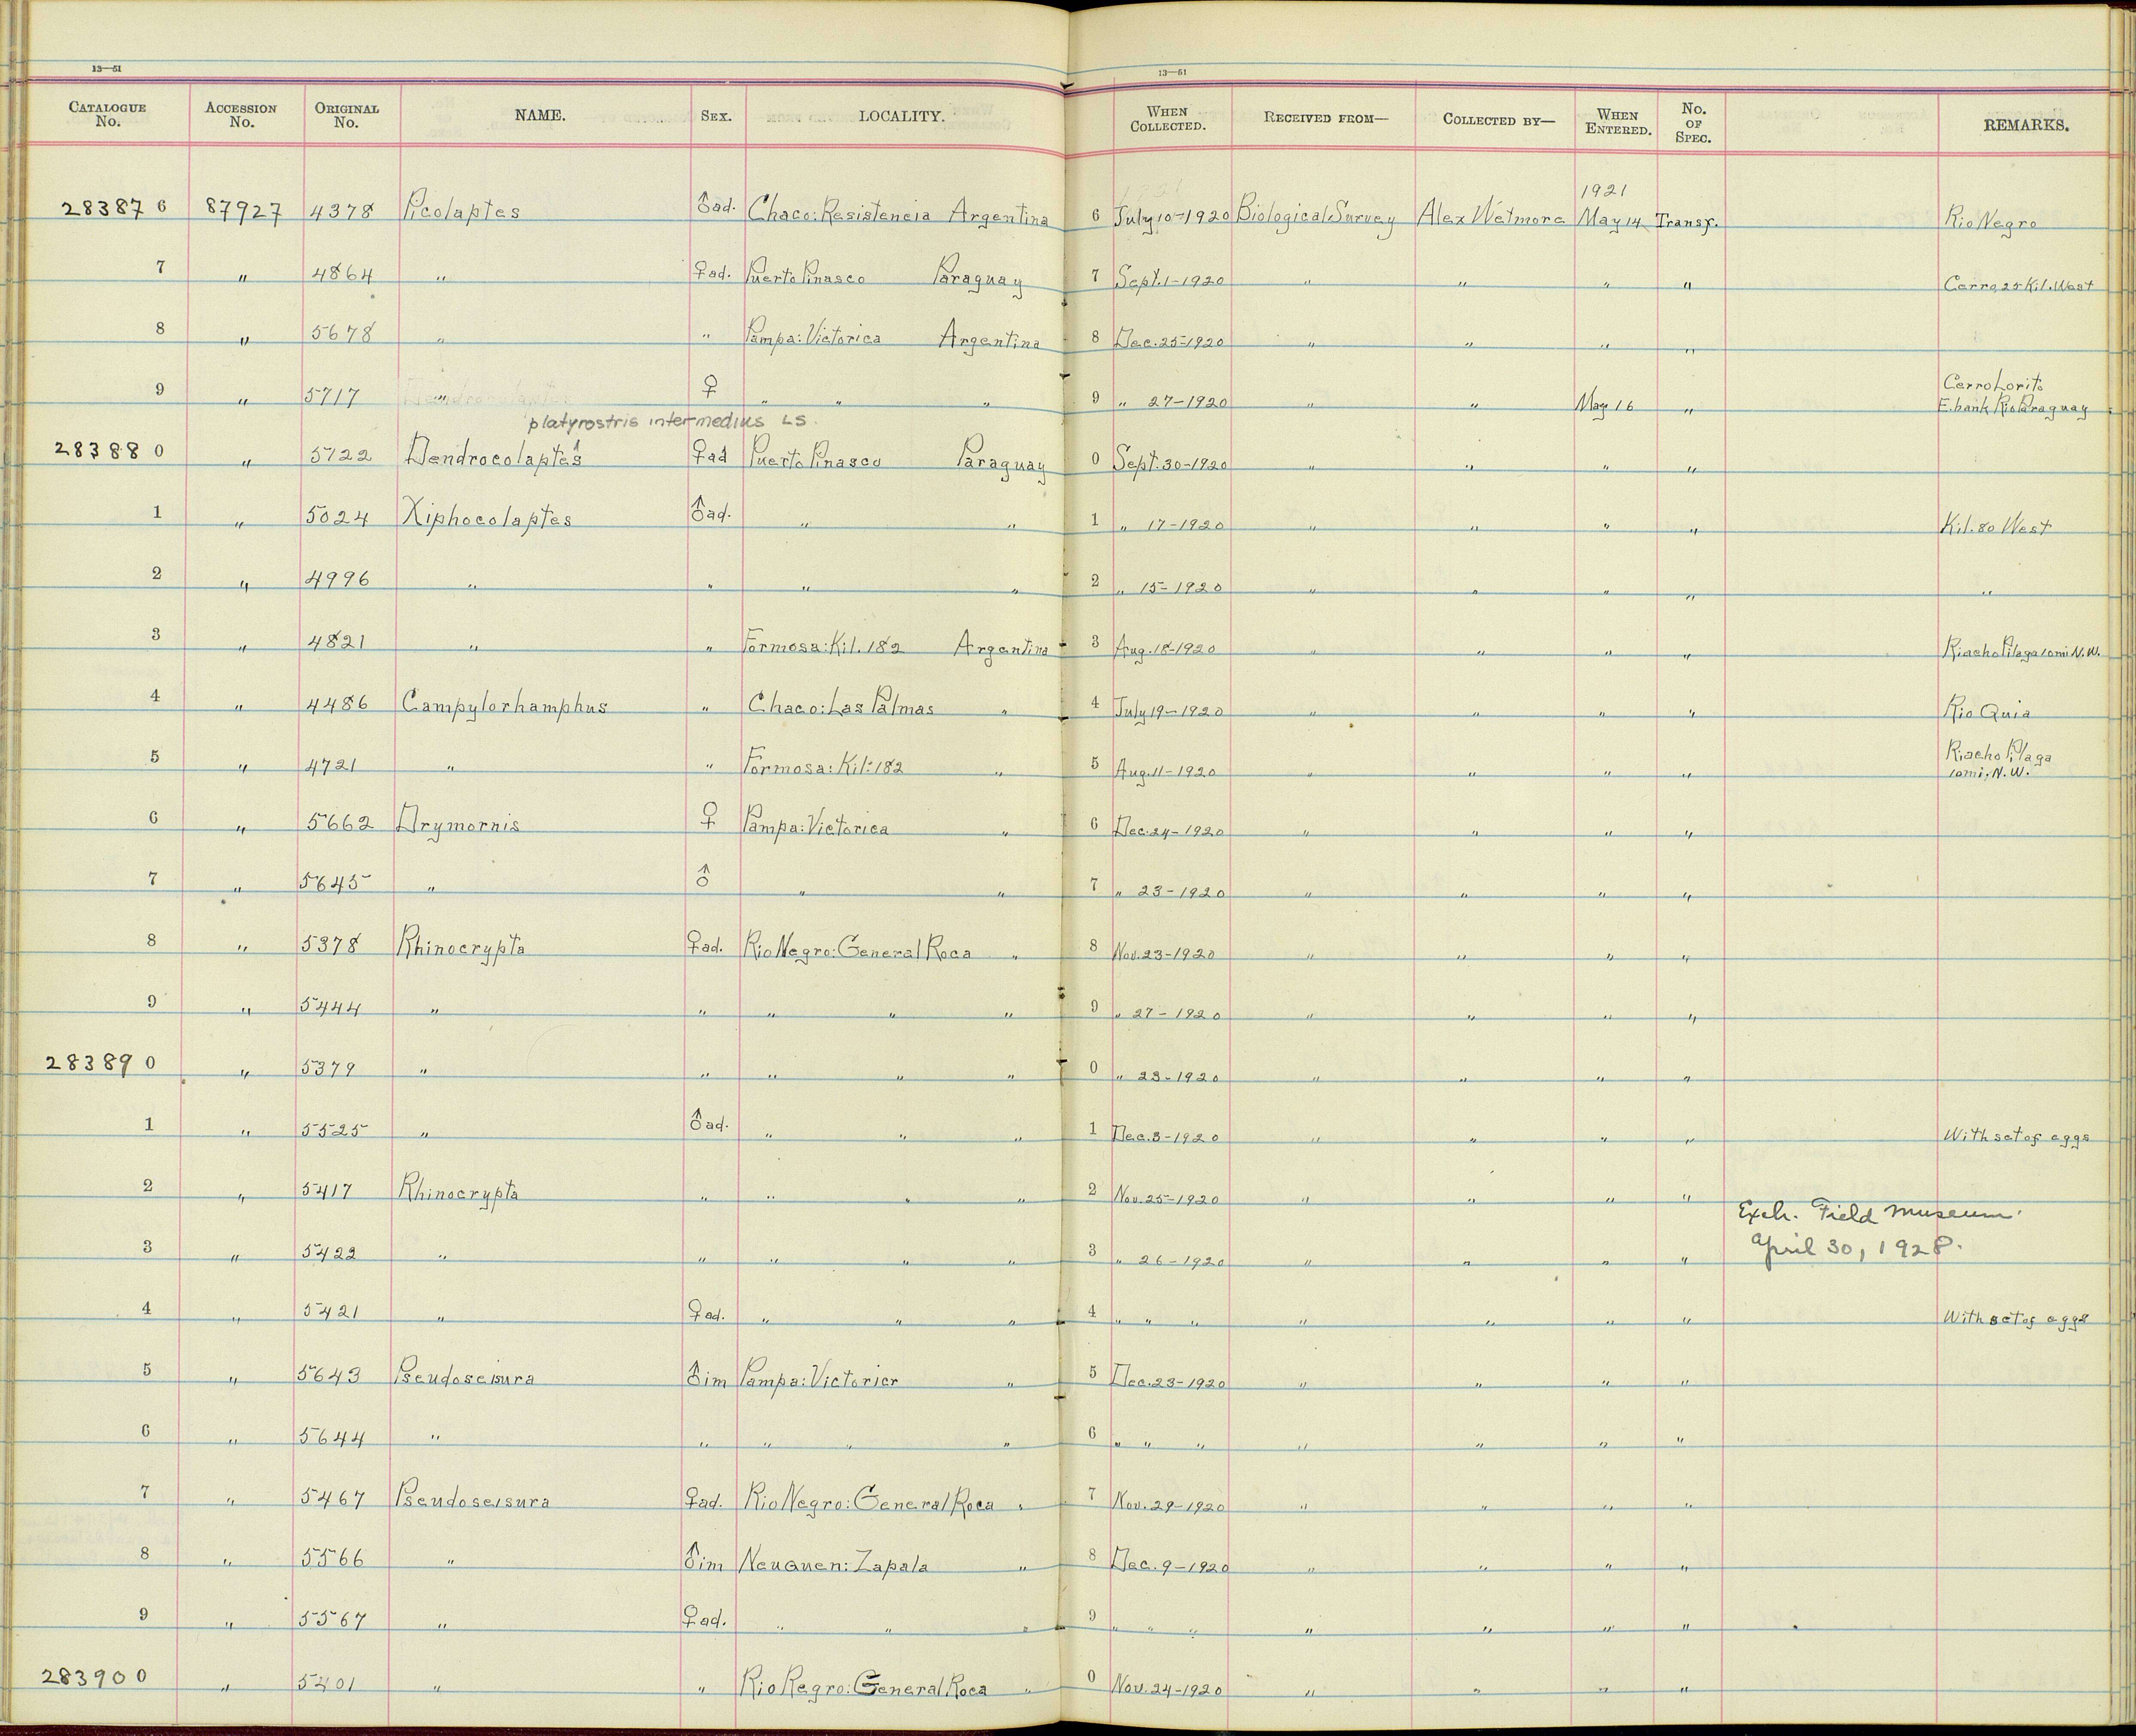 13—51
13—51
CATALOGUE No. ACCESSION No. ORIGINAL No. NAME. SEX. LOCALITY. WHEN COLLECTED. RECEIVED FROM— COLLECTED BY— WHEN ENTERED. No. OF SPEC. REMARKS.
1921
283876 87927 4378 Picolaptes ♂ad. Chaco: Resistencia Argentina 6 July 10-1920 Biological Survey Alex Wetmore May 14 Transf. Rio Negro
7 " 4864 " ♀ad. Puerto Pinasco Paraguay 7 Sept. 1-1920 " " " " Cerro, 25 Kil. West
8 " 5678 " " Pampa: Victorica Argentina 8 Dec. 25-1920 " " " "
9 " 5717 " ♀ " " " 9 " 27-1920 " " May 16 " Cerro Lorito
E. bank Rio Paraguay
platyrostris intermedius LS.
283880 " 5722 Dendrocolaptes ♀ad Puerto Pinasco Paraguay 0 Sept. 30-1920 " " " "
1 " 5024 Xiphocolaptes ♂ad. " " 1 " 17-1920 " " " " Kil. 80 West
2 " 4996 " " " " 2 " 15-1920 " " " " "
3 " 4821 " " Formosa: Kil. 182 Argentina 3 Aug. 18-1920 " " " " Riacho Pilaga 10 mi N.W.
4 " 4486 Campylorhamphus " Chaco: Las Palmas " 4 July 19-1920 " " " " Rio Quia
5 " 4721 " " Formosa: Kil: 182 " 5 Aug. 11-1920 " " " " Riacho Pilaga
10 mi, N.W.
6 " 5662 Drymornis ♀ Pampa: Victorica " 6 Dec. 24-1920 " " " "
7 " 5645 " ♂ " " 7 " 23-1920 " " " "
8 " 5378 Rhinocrypta ♀ad. Rio Negro: General Roca " 8 Nov. 23-1920 " " " "
9 " 5444 " " " " " 9 " 27-1920 " " " "
283890 " 5379 " " " " " 0 " 23-1920 " " " "
1 " 5525 " ♂ad. " " " 1 Dec. 3-1920 " " " " With set of eggs
2 " 5417 Rhinocrypta " " " " 2 Nov. 25-1920 " " " "
Exch. Field Museum.
3 " 5422 " " " " " 3 " 26-1920 " " " " April 30, 1928.
4 " 5421 " ♀ad. " " " 4 " " " " " " " With set of eggs
5 " 5643 Pseudoseisura ♂im Pampa: Victorier " 5 Dec. 23-1920 " " " "
6 " 5644 " " " " " 6 " " " " " " "
7 " 5467 Pseudoseisura ♀ad. Rio Negro: General Roca " 7 Nov. 29-1920 " " " "
8 " 5566 " ♂im Neuquen: Zapala " 8 Dec. 9-1920 " " " "
9 " 5567 " ♀ad. " " " 9 " " " " " " "
283900 " 5401 " " Rio Regro: General Roca " 0 Nov. 24-1920 " " " "